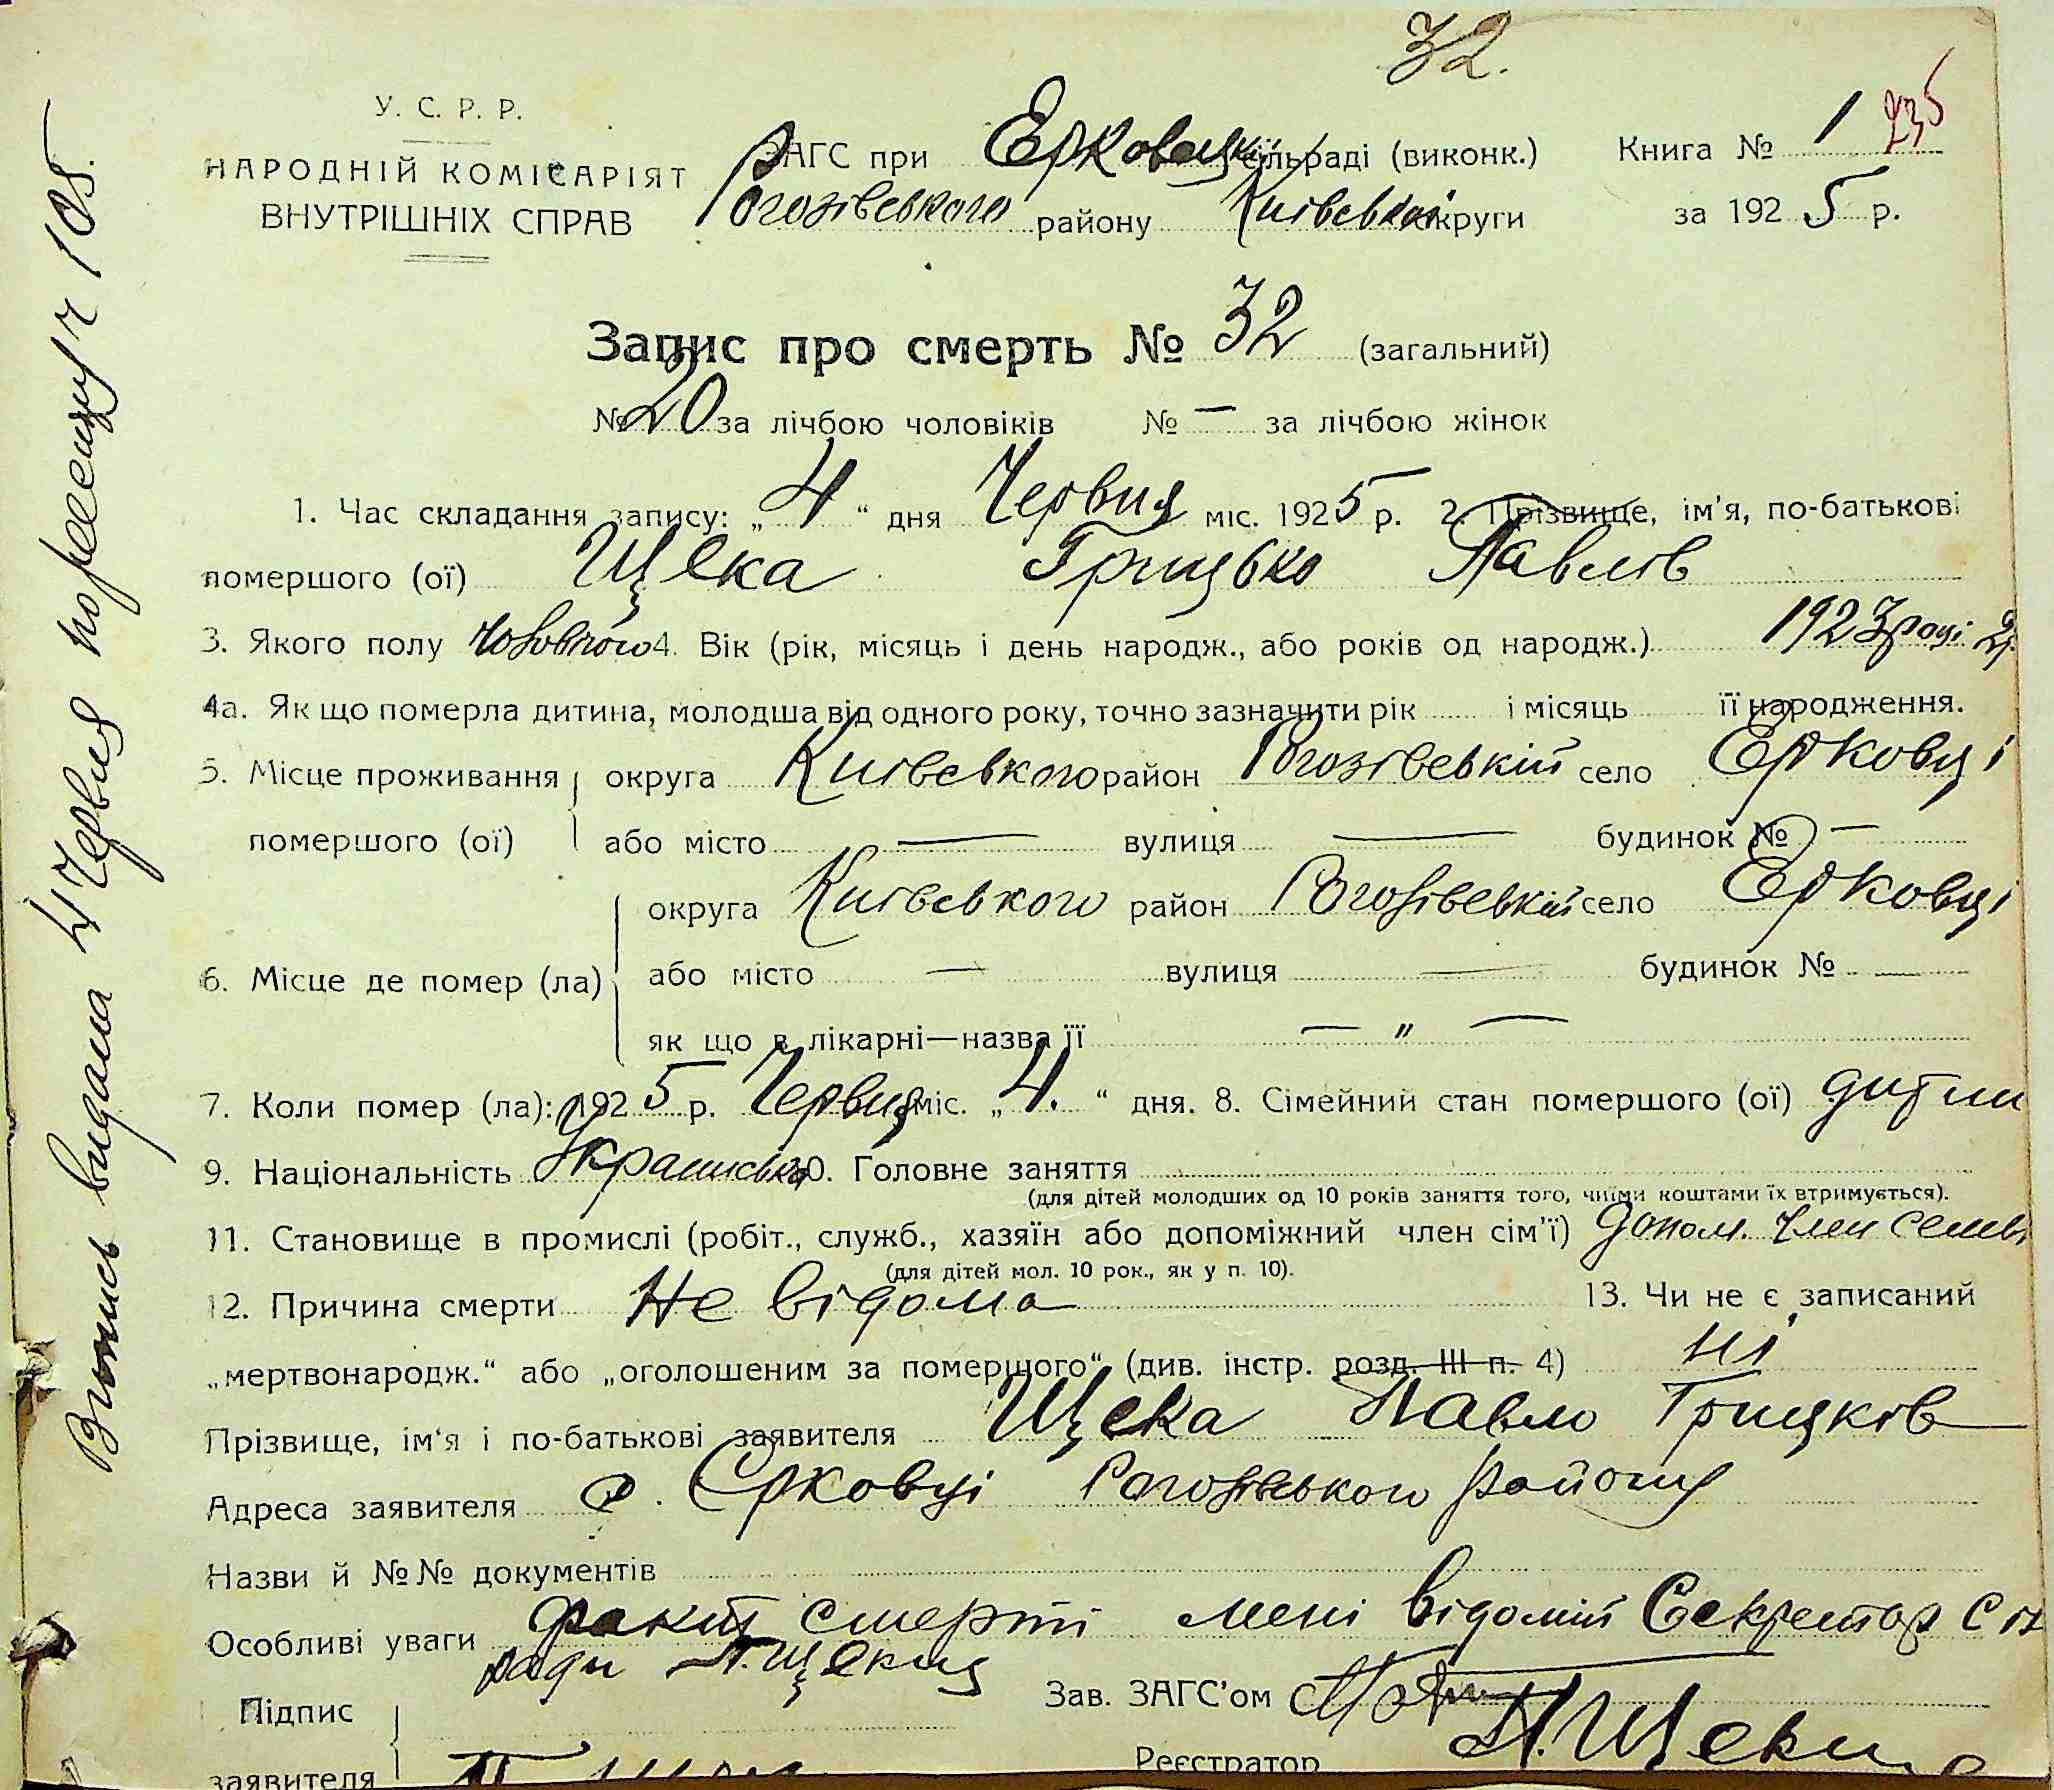 32.
У. С. Р. Р.
НАРОДНІЙ КОМІСАРІЯТ
ВНУТРІШНІХ СПРАВ
ЗАГС при Ерковецькій сільраді (виконк.)
Рогозівського району Київської округи
Книга № 1 235
за 1925 р.
Запис про смерть № 32 (загальний)
№ 20 за лічбою чоловіків № — за лічбою жінок
1. Час складання запису: „4“ дня Червня міс. 1925 р. 2. Прізвище, ім'я, по-батькові
помершого (ої) Щека Грицько Павлів
3. Якого полу чоловічого 4. Вік (рік, місяць і день народж., або років од народж.) 1923 році 2 р.
4а. Як що померла дитина, молодша від одного року, точно зазначити рік і місяць її народження.
5. Місце проживання округа Київського район Рогозівський село Ерковці
помершого (ої) або місто — вулиця — будинок № —
округа Київського район Рогозівський село Ерковці
6. Місце де помер (ла) або місто — вулиця — будинок № —
як що в лікарні—назва її — „ —
7. Коли помер (ла): 1925 р. Червня міс. „4.“ дня. 8. Сімейний стан помершого (ої) дитин
9. Національність Українська 10. Головне заняття
(для дітей молодших од 10 років заняття того, чиїми коштами їх втримується).
11. Становище в промислі (робіт., служб., хазяїн або допоміжний член сім'ї) допом. член семьі
(для дітей мол. 10 рок., як у п. 10).
12. Причина смерти Не відома 13. Чи не є записаний
„мертвонародж.“ або „оголошеним за помершого“ (див. інстр. розд. III п. 4) ні
Прізвище, ім'я і по-батькові заявителя Щека Павло Грицків
Адреса заявителя с. Єрковці Рогозівського району
Назви й №№ документів
Особливі уваги факт смерті мені відомий Секретар сіль
ради П. Щекиц
Підпис
заявителя
Зав. ЗАГС'ом
Реєстратор
Випись видана 4 Червня по реєстру ч 105.